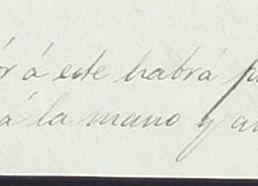 ór á este habrá p
á la mano y a